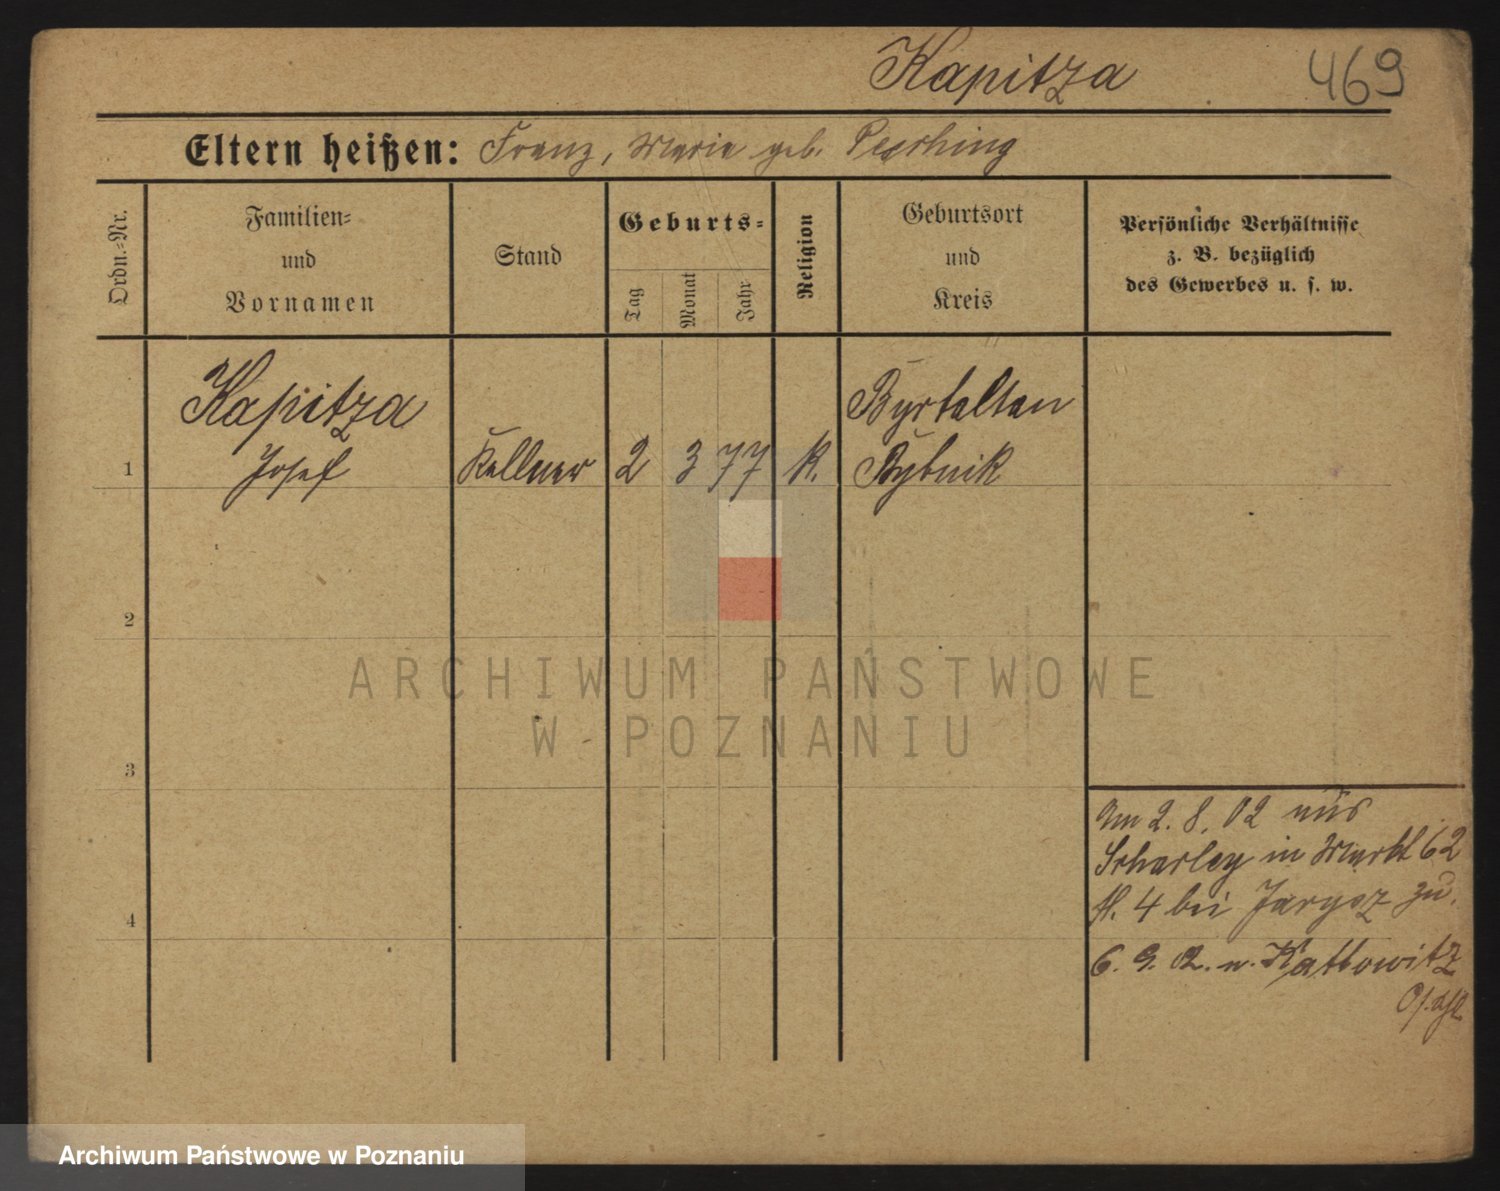 Kapitza
469
Eltern heißen: Franz, Marie geb.
Ordn.-Nr.
Familien-
und
Vornamen
Stand
Geburts-
Tag
Monat
Jahr
Religion
Geburtsort
und
Kreis
Persönliche Verhältnisse
z. B. bezüglich
des Gewerbes u. s. w.
Kapitza
Josef
1
Kellner
2
3
77
K.
Rybnik
2
3
4
Am 2. 8. 02 aus
Scharley in Markt 62
H. 4 bei Jarysz zu.
6. 9. 02. n. Kattowitz
ARCHIWUM PAŃSTWOWE
W POZNANIU
Archiwum Państwowe w Poznaniu